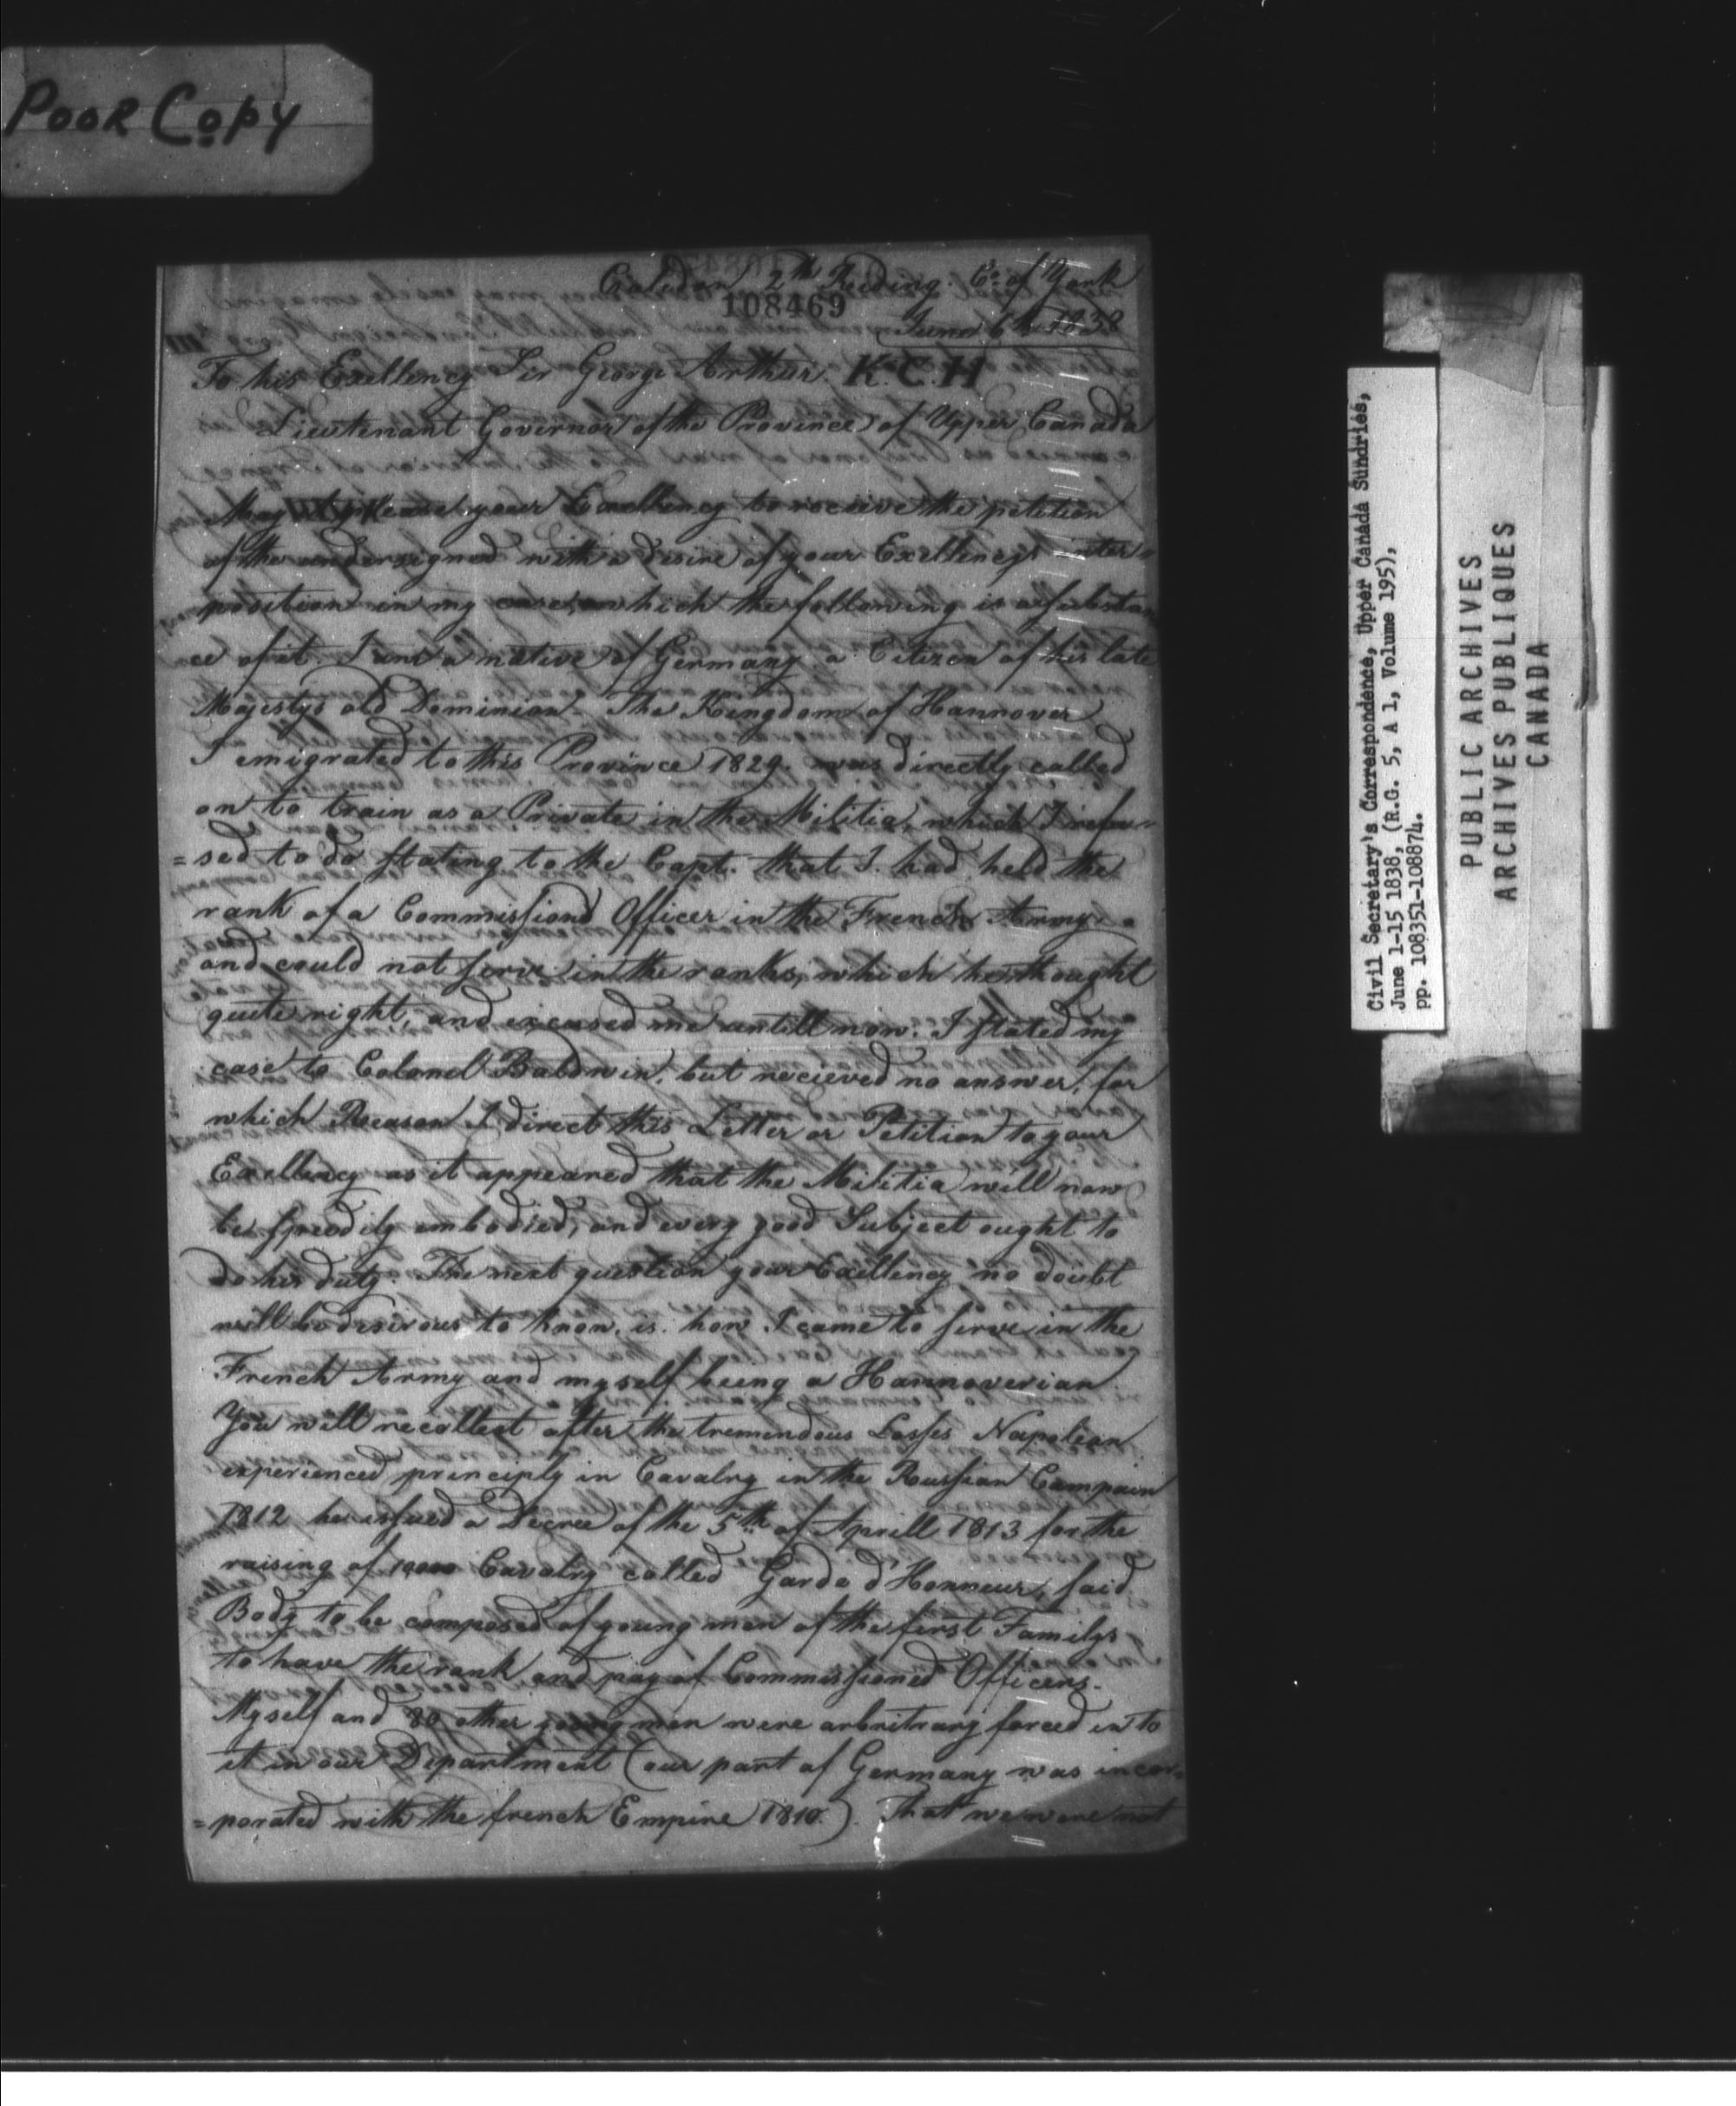 POOR COPY
Caledon 2th Reiding Co. of York
108469
June 6th 1838
To his Exellency Sir George Arthur K.C.H
Lieutenant Governor of the Province of Upper Canada
May it please your Exellency to receive the petition
of the undersigned with a desire of your Exellency's inter=
position in my case, which the following is a substan
ce of it. I am a native of Germany a Citizen of his late
Majestys old Dominion. The Kingdom of Hannover
I emigrated to this Province 1829. was directly called
on to train as a Private in the Militia, which I refu=
=sed to do stating to the Capt. that I had held the
rank of a Commissiond Officer in the French Army
and could not serve in the ranks, which he thought
quite right, and excused me untill now. I stated my
case to Colonel Baldwin, but recieved no answer, for
which Reason I direct this Letter or Petition to your
Exellency as it appeared that the Militia will now
be speedily embodied, and every good Subject ought to
do his duty. The next question your Exellency no doubt
will be desirous to know, is how I came to serve in the
French Army and myself being a Hannoverian
You will recollect after the tremendous Losses Napoleon
experienced principly in Cavalry in the Russian Campain
1812 he issued a Decree of the 5th of Aprill 1813 for the
raising of 10,000 Cavalry called Garde d'Honneur, said
Body to be composed of young men of the first Familys
to have the rank and pay of Commissioned Officers.
Myself and 80 other young men were arbritrary forced in to
it in our Department (our part of Germany was incor=
=porated with the french Empire 1810.) That we were not
Civil Secretary's Correspondence, Upper Canada Sundries,
June 1-15 1838, (R.G. 5, A 1, Volume 195),
pp. 108351-108874.
PUBLIC ARCHIVES
ARCHIVES PUBLIQUES
CANADA